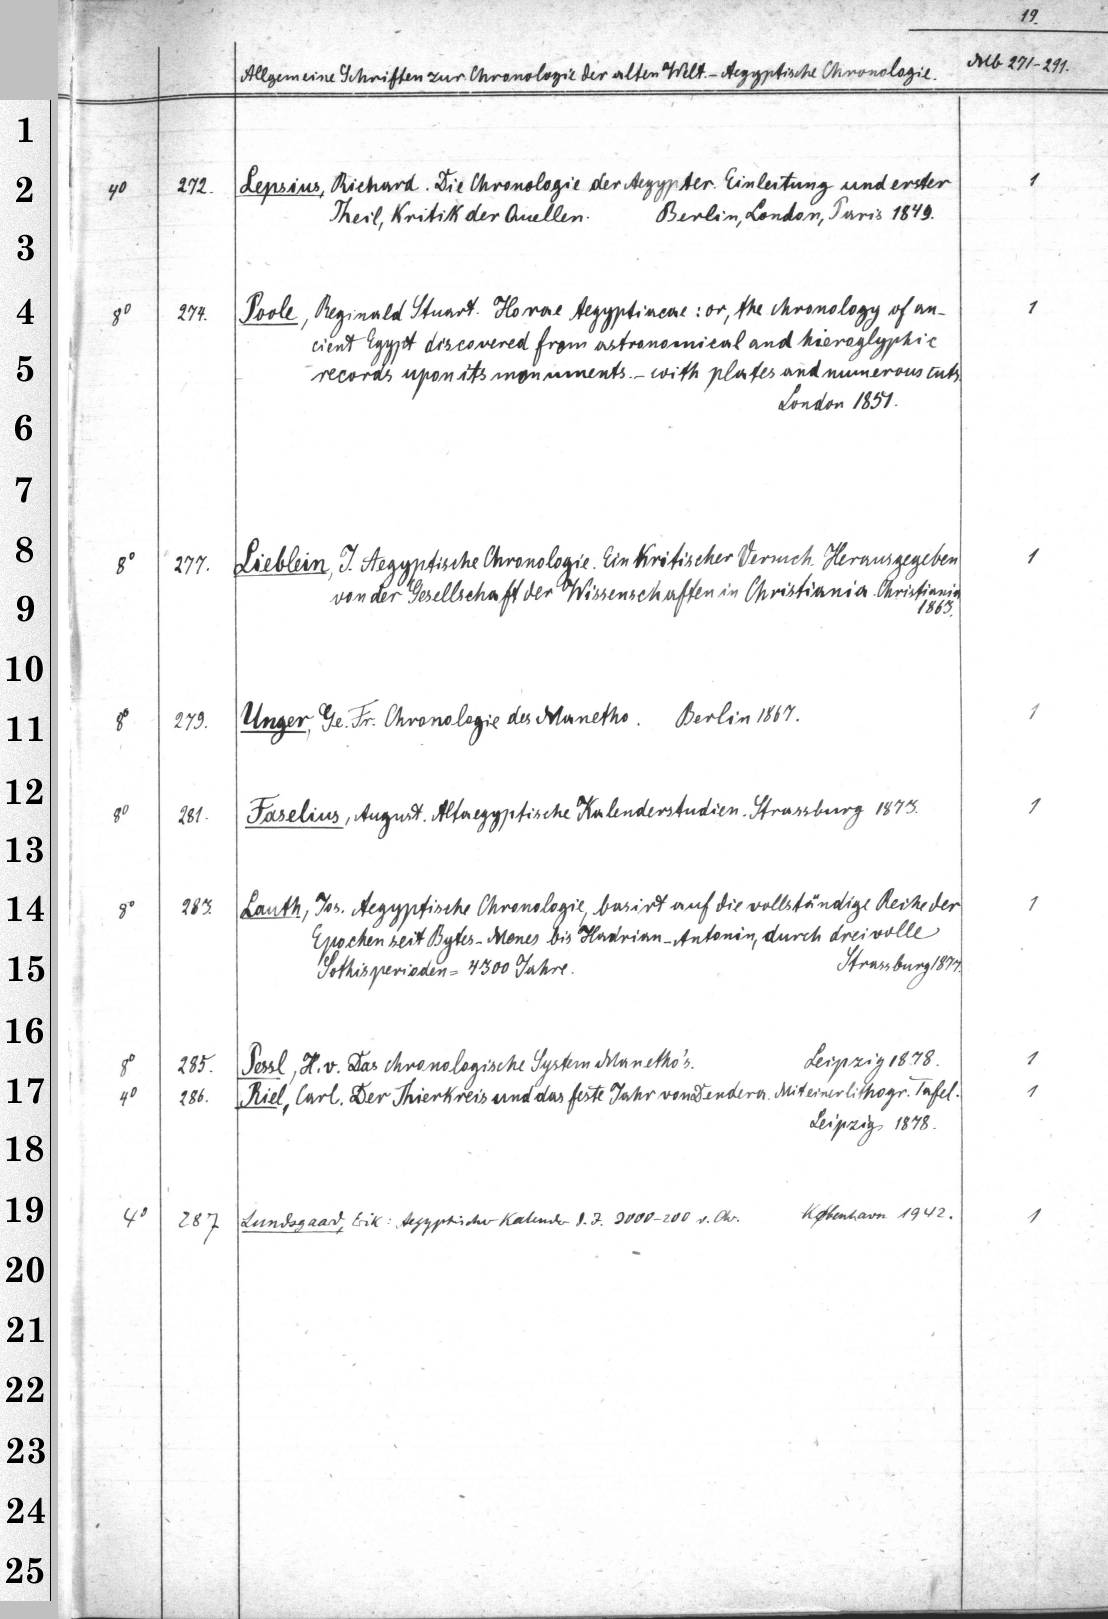 19.
Allgemeine Schriften zur Chronologie der alten Welt. - Aegyptische Chronologie. Mb 271-291.
1
2 4° 272. Lepsius, Richard. Die Chronologie der Aegypter. Einleitung und erster 1
Theil, Kritik der Quellen. Berlin, London, Paris 1849.
3
4 8° 274. Poole, Reginald Stuart. Horae Aegyptiacae: or, the chronology of an-
1
cient Egypt discovered from astronomical and hieroglyphic
5 records upon its monuments. - with plates and numerous cuts.
London 1851.
6
7
8 8° 277. Lieblein, J. Aegyptische Chronologie. Ein Kritischer Versuch. Herausgegeben 1
von der Gesellschaft der Wissenschaften in Christiania. Christiania
9 1863.
10
11 8° 279. Unger, Ge. Fr. Chronologie des Manetho. Berlin 1867. 1
12
8° 281. Faselius, August. Altaegyptische Kalenderstudien. Strassburg 1873. 1
13
14 8° 283. Lauth, Jos. Aegyptische Chronologie, basirt auf die vollständige Reihe der 1
Epochen seit Bytes-Menes bis Hadrian-Antonin, durch drei volle
15 Sothisperioden = 4300 Jahre. Strassburg 1877.
16
8° 285. Pessl, H. v. Das chronologische System Manetho's. Leipzig 1878. 1
17 4° 286. Riel, Carl. Der Thierkreis und das feste Jahr von Dendera. Mit einer lithogr. Tafel. 1
Leipzig 1878.
18
19 4° 287 Lundsgaard, Erik: Aegyptischer Kalender d. J. 3000-200 v. Chr. København 1942. 1
20
21
22
23
24
25